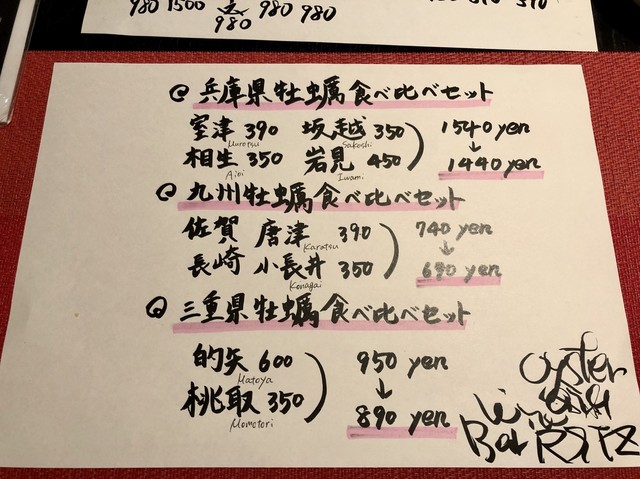 980 1500 980 980
980
@ 兵庫県牡蠣食べ比べセット
室津 390 坂越 350 1540 yen
Murotsu Sakoshi ↓
相生 350 岩見 450 1440 yen
Aioi Iwami
@ 九州牡蠣食べ比べセット
佐賀 唐津 390 740 yen
Karatsu ↓
長崎 小長井 350 690 yen
Konagai
@ 三重県牡蠣食べ比べセット
的矢 600 950 yen
Matoya ↓
桃取 350 890 yen
Momotori
oyster
Bar